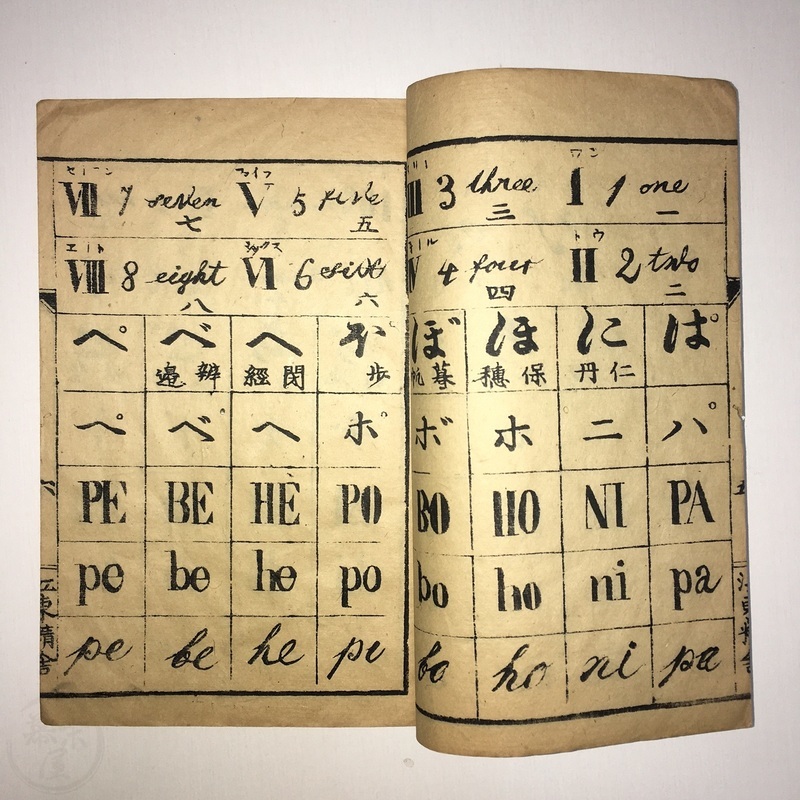 ワン
I 1 one
一
トウ
II 2 two
二
III 3 three
三
IV 4 four
四
ぱ に ほ ぼ
仁丹 保穗 暮帆
パ ニ ホ ボ
PA NI HO BO
pa ni ho bo
pa ni ho bo
ファイフ
V 5 five
五
シックス
VI 6
六
VII 7 seven
七
エイト
VIII 8 eight
八
ぽ へ べ ぺ
歩 閇經 辨邉
ポ ヘ ベ ペ
PO HÈ BE PE
po he be pe
po he be pe
六
江東精舎